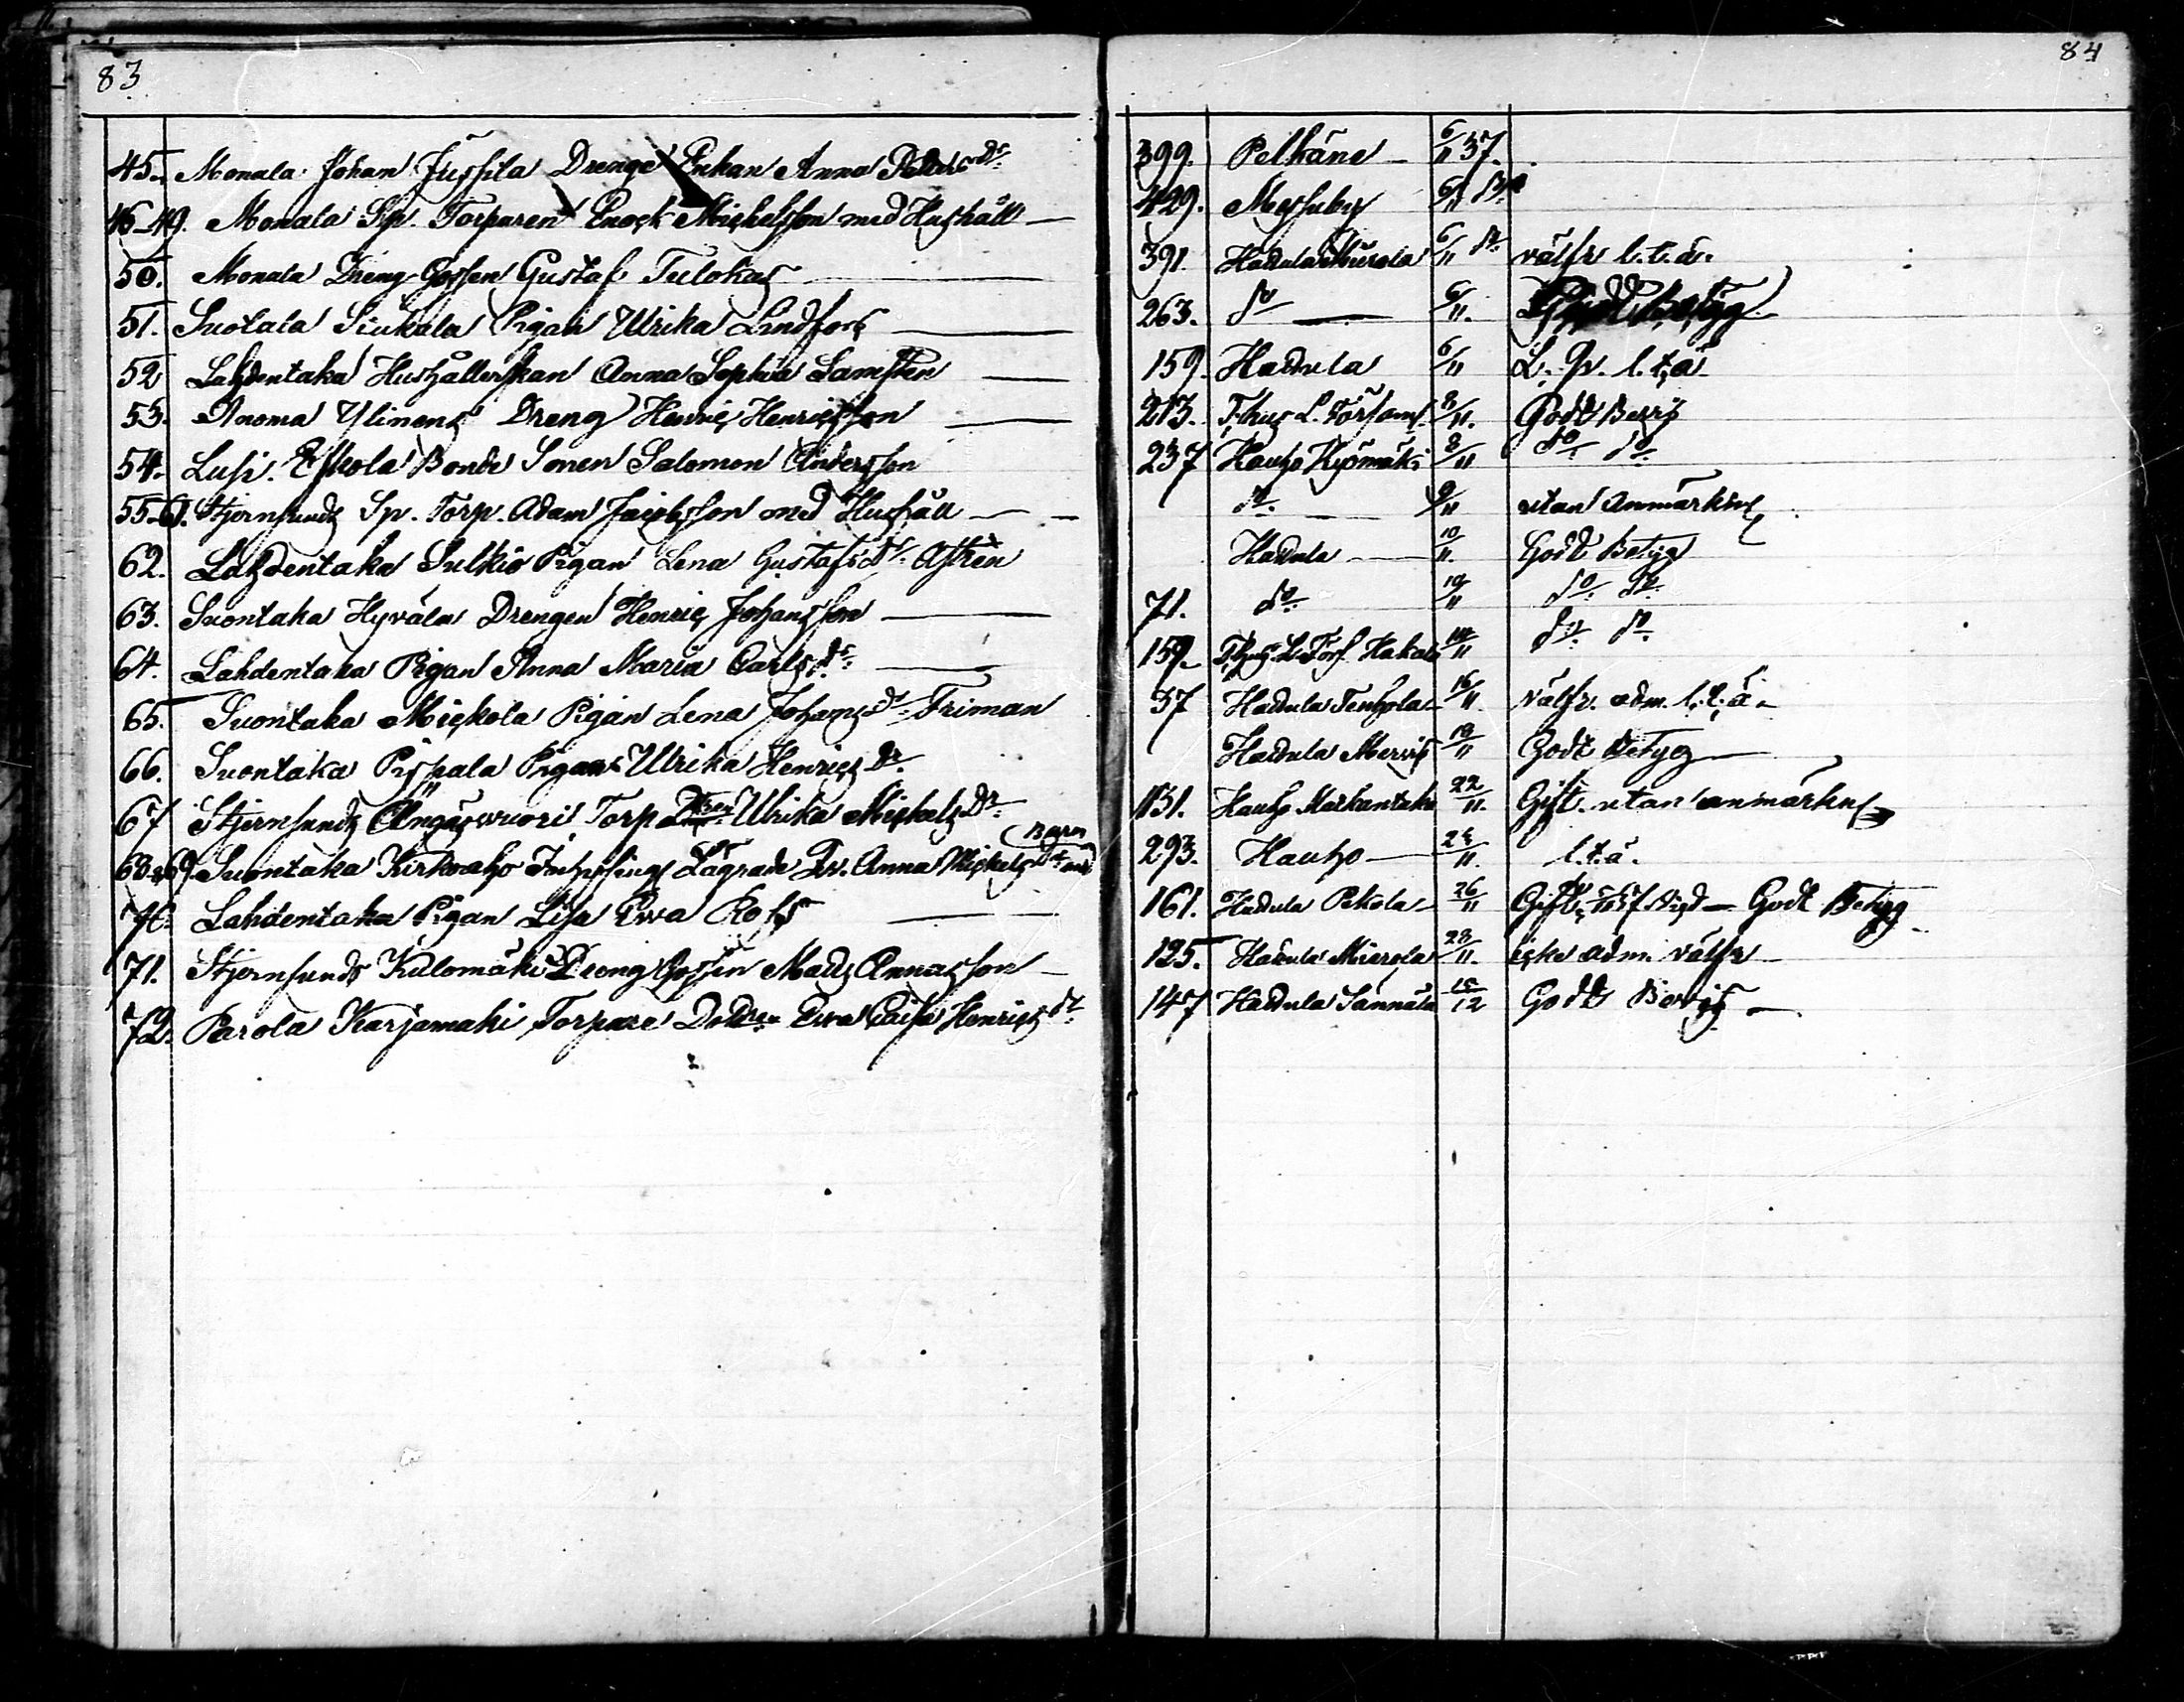 83
45. Monala Johan Jussila Drenge Enkan Anna Petersdr
46-49. Monala Sp. Torparen Enock Michelsson med Hushåll
50. Monala Dreng Gossen Gustaf Tulokas
51. Suotala Siukola Pigan Ulrika Lindfors
52 Lahdentaka Hushållerskan Anna Sophia Lamsten
53. Anoma Ylinens Dreng Henric Henricsson
54. Lusi. Eskola Bonde Sonen Salomon Andersson
55-61. Stjernsunds Sp. Torp. Adam Jacobsson med Hushåll
62. Lahdentaka Sulkio Pigan Lena Gustafsdr
63. Suontaka Hyväla Drengen Henric Johansson
64. Lahdentaka Pigan Anna Maria Carlsdr
65. Suontaka Mickola Pigan Lena Johansdr Friman
66. Suontaka Pispala Pigan Ulrika Henricsdr
67 Stjernsunds Angäswuori Torp Ulrika Michelsdr
Barn
68 & 69 Suontaka Kirkoaho Inhysings Lägrade Qv. Anna Mickelsdr med
70. Lahdentaka Pigan Lisa Ewa Rofs
71. Stjernsunds Kulomäki Dreng Gossen Mads Annasson
72. Parola Karjamaki Torpare Dottren Ewa Caisa Henricsdr
84
399. Pelkäne 6/11 37.
429. Messuby 6/11 do
391. Hattula Mierola 6/11 do välfr l.t.ä.
263. do 6/11. Godt Betyg
159. Hattula 6/11 L. Qv. l.t.ä
213. T.hus L. Förs 8/11. Godt Bevis
237 Hauho Kyömäki 8/11 do do
do 9/11 utan Anmärkn
Hattula 10/11. Godt Betyg
71. do 10/11 do do
159. T.hus L. Förs. Hakala 14/11 do do
37 Hattula Tenhola 16/11. välfr. adm. l.t.ä.
Hattula Mervis 19/11 Godt Betyg
131. Hauho Markantaka 22/11. Gift. utan anmärkn
293. Hauho 24/11. l.t.ä.
161. Hattula Pekola 26/11 Gift, 5/11 37 vigd Godt Betyg
125. Hattula Mierola 28/11. icke adm. välfr
147 Hattula Sannala 15/12 Godt Bevis